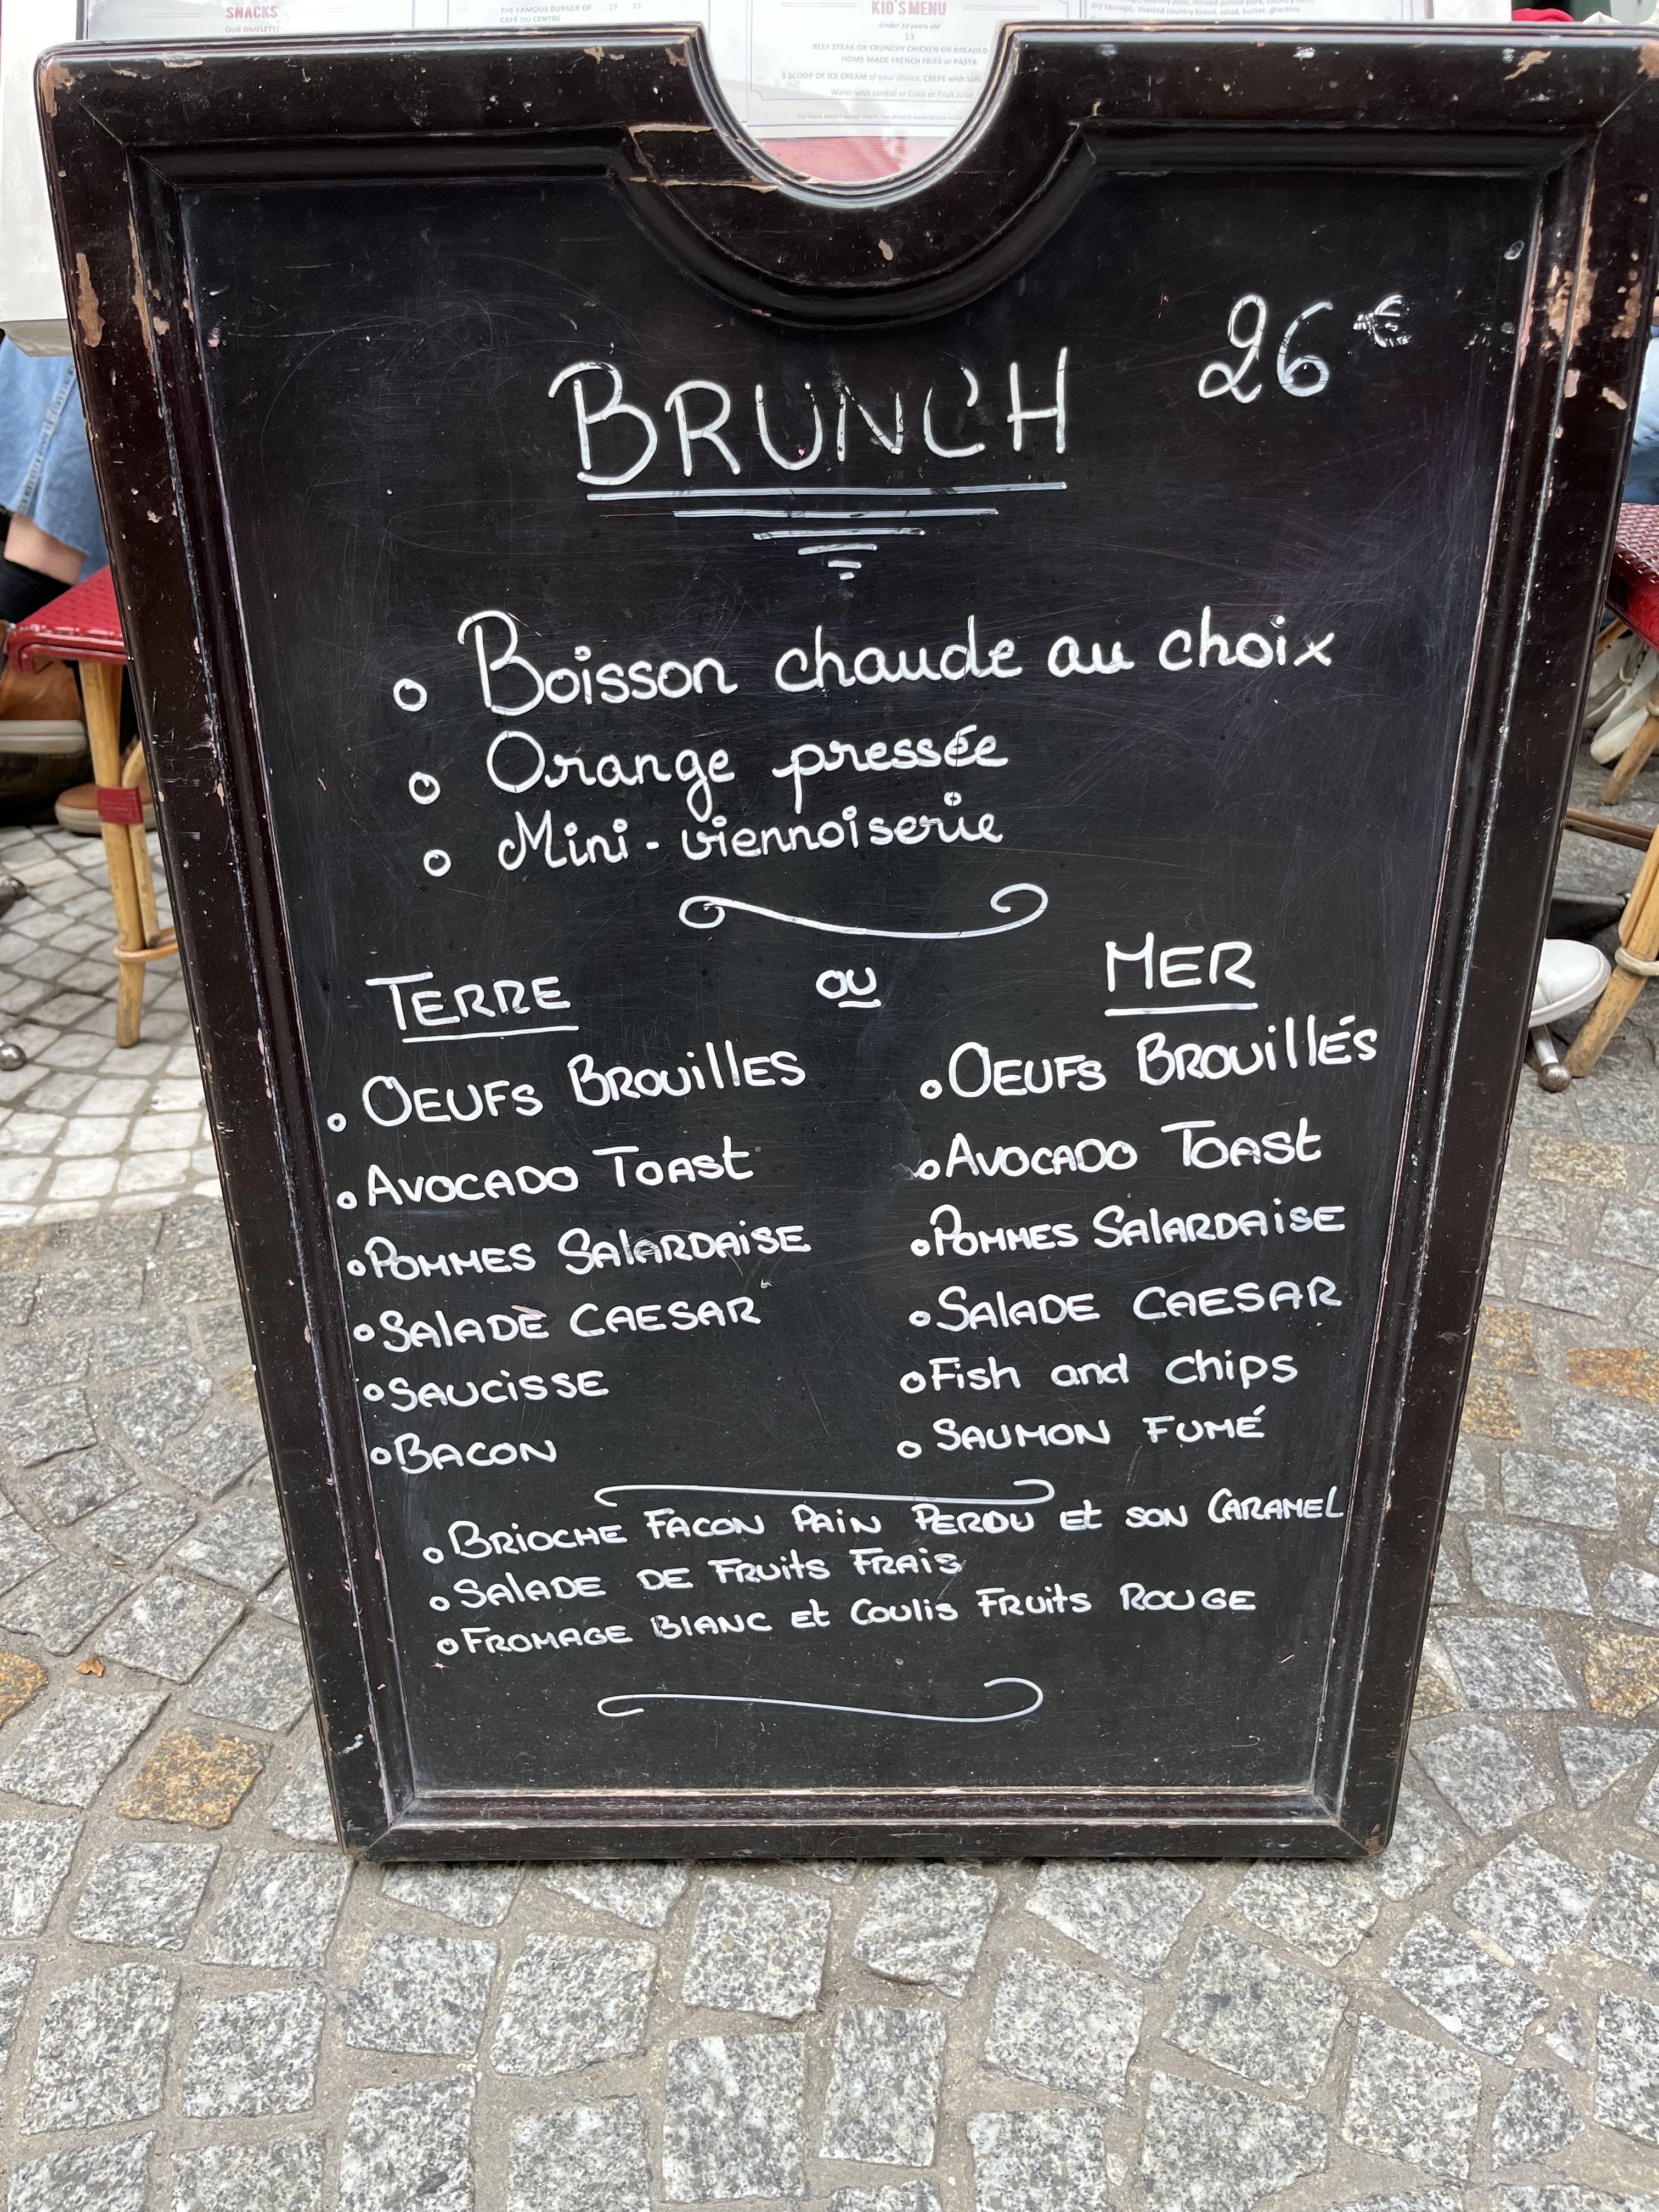 SNACKS
OUR OMELETTE
THE FAMOUS BURGER OF 19 23
CAFÉ DU CENTRE
KID'S MENU
Under 10 years old
13
BEEF STEAK OR CRUNCHY CHICKEN OR BREADED
HOME MADE FRENCH FRIES or PASTA
1 SCOOP OF ICE CREAM of your choice, CREPE with SUG
Water with cordial or Coke or Fruit Juice
dry sausage, toasted country bread, salad, butter, gherkins
26€
BRUNCH
Boisson chaude au choix
Orange pressée
Mini-viennoiserie
TERRE OU MER
OEUFS BROUILLES
AVOCADO TOAST
POMMES SALARDAISE
SALADE CAESAR
SAUCISSE
BACON
OEUFS BROUILLÉS
AVOCADO TOAST
POMMES SALARDAISE
SALADE CAESAR
Fish and chips
SAUMON FUMÉ
BRIOCHE FACON PAIN PERDU et SON CARAMEL
SALADE DE FRUITS FRAIS
FROMAGE BLANC et COULIS FRUITS ROUGE